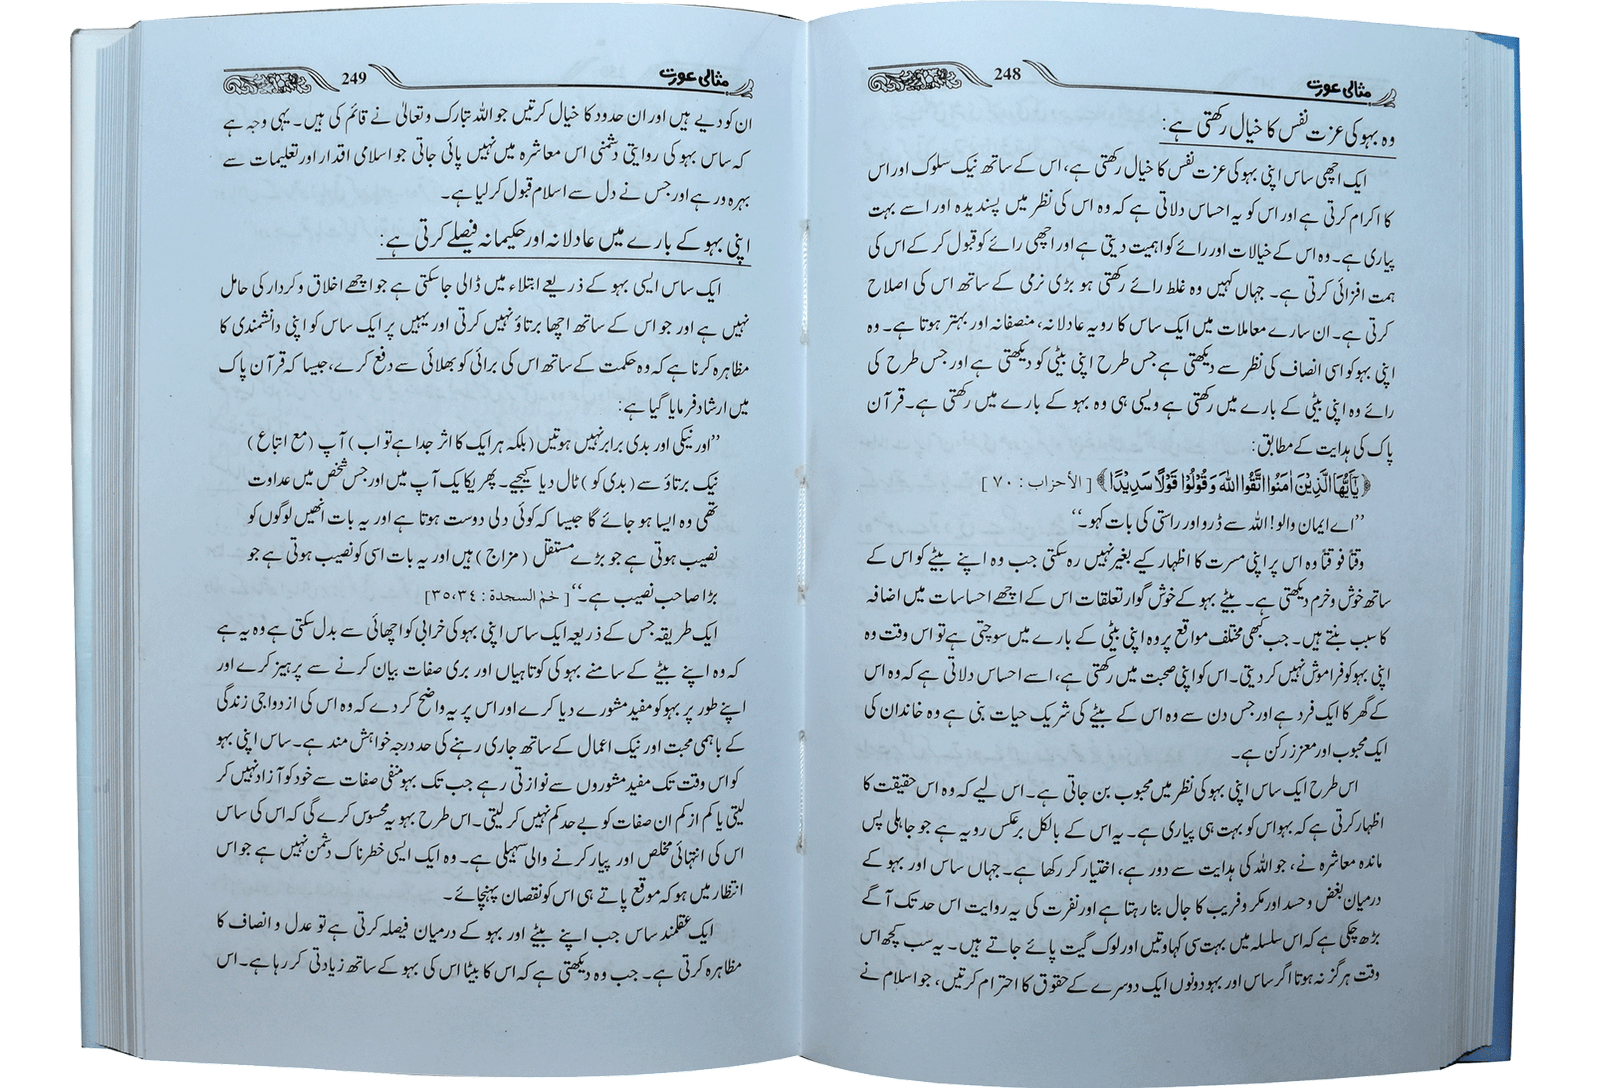 مثالی عورت 248
وہ بہو کی عزت نفس کا خیال رکھتی ہے:
ایک اچھی ساس اپنی بہو کی عزت نفس کا خیال رکھتی ہے، اس کے ساتھ نیک سلوک اور اس
کا اکرام کرتی ہے اور اس کو یہ احساس دلاتی ہے کہ وہ اس کی نظر میں پسندیدہ اور اسے بہت
پیاری ہے۔ وہ اس کے خیالات اور رائے کو اہمیت دیتی ہے اور اچھی رائے کو قبول کر کے اس کی
ہمت افزائی کرتی ہے۔ جہاں کہیں وہ غلط رائے رکھتی ہو بڑی نرمی کے ساتھ اس کی اصلاح
کرتی ہے۔ ان سارے معاملات میں ایک ساس کا رویہ عادلانہ، منصفانہ اور بہتر ہوتا ہے۔ وہ
اپنی بہو کو اسی انصاف کی نظر سے دیکھتی ہے جس طرح اپنی بیٹی کو دیکھتی ہے اور جس طرح کی
رائے وہ اپنی بیٹی کے بارے میں رکھتی ہے ویسی ہی وہ بہو کے بارے میں رکھتی ہے۔ قرآن
پاک کی ہدایت کے مطابق:
﴿يٰۤاَيُّهَا الَّذِيْنَ اٰمَنُوا اتَّقُوا اللّٰهَ وَقُوْلُوْا قَوْلًا سَدِيْدًا﴾ [الأحزاب : ٧٠]
’’اے ایمان والو! اللہ سے ڈرو اور راستی کی بات کہو۔‘‘
وقتًا فوقتًا وہ اس پر اپنی مسرت کا اظہار کیے بغیر نہیں رہ سکتی جب وہ اپنے بیٹے کو اس کے
ساتھ خوش و خرم دیکھتی ہے۔ بیٹے بہو کے خوش گوار تعلقات اس کے اچھے احساسات میں اضافہ
کا سبب بنتے ہیں۔ جب کبھی مختلف مواقع پر وہ اپنی بیٹی کے بارے میں سوچتی ہے تو اس وقت وہ
اپنی بہو کو فراموش نہیں کر دیتی۔ اس کو اپنی صحبت میں رکھتی ہے، اسے احساس دلاتی ہے کہ وہ اس
کے گھر کا ایک فرد ہے اور جس دن سے وہ اس کے بیٹے کی شریک حیات بنی ہے وہ خاندان کی
ایک محبوب اور معزز رکن ہے۔
اس طرح ایک ساس اپنی بہو کی نظر میں محبوب بن جاتی ہے۔ اس لیے کہ وہ اس حقیقت کا
اظہار کرتی ہے کہ بہو اس کو بہت ہی پیاری ہے۔ یہ اس کے بالکل برعکس رویہ ہے جو جاہلی پس
ماندہ معاشرہ نے، جو اللہ کی ہدایت سے دور ہے، اختیار کر رکھا ہے۔ جہاں ساس اور بہو کے
درمیان بغض و حسد اور مکر و فریب کا جال بنا رہتا ہے اور نفرت کی یہ روایت اس حد تک آگے
بڑھ چکی ہے کہ اس سلسلہ میں بہت سی کہاوتیں اور لوک گیت پائے جاتے ہیں۔ یہ سب کچھ اس
وقت ہرگز نہ ہوتا اگر ساس اور بہو دونوں ایک دوسرے کے حقوق کا احترام کرتیں، جو اسلام نے
مثالی عورت 249
ان کو دیے ہیں اور ان حدود کا خیال کرتیں جو اللہ تبارک و تعالیٰ نے قائم کی ہیں۔ یہی وجہ ہے
کہ ساس بہو کی روایتی دشمنی اس معاشرہ میں نہیں پائی جاتی جو اسلامی اقدار اور تعلیمات سے
بہرہ ور ہے اور جس نے دل سے اسلام قبول کر لیا ہے۔
اپنی بہو کے بارے میں عادلانہ اور حکیمانہ فیصلے کرتی ہے:
ایک ساس ایسی بہو کے ذریعے ابتلاء میں ڈالی جا سکتی ہے جو اچھے اخلاق و کردار کی حامل
نہیں ہے اور جو اس کے ساتھ اچھا برتاؤ نہیں کرتی اور یہیں پر ایک ساس کو اپنی دانشمندی کا
مظاہرہ کرنا ہے کہ وہ حکمت کے ساتھ اس کی برائی کو بھلائی سے دفع کرے، جیسا کہ قرآن پاک
میں ارشاد فرمایا گیا ہے:
’’اور نیکی اور بدی برابر نہیں ہوتیں (بلکہ ہر ایک کا اثر جدا ہے تو اب) آپ (مع اتباع)
نیک برتاؤ سے (بدی کو) ٹال دیا کیجیے۔ پھر یکایک آپ میں اور جس شخص میں عداوت
تھی وہ ایسا ہو جائے گا جیسا کہ کوئی دلی دوست ہوتا ہے اور یہ بات انھیں لوگوں کو
نصیب ہوتی ہے جو بڑے مستقل (مزاج) ہیں اور یہ بات اسی کو نصیب ہوتی ہے جو
بڑا صاحب نصیب ہے۔‘‘ [حٰمٓ السجدة : ٣٥،٣٤]
ایک طریقہ جس کے ذریعہ ایک ساس اپنی بہو کی خرابی کو اچھائی سے بدل سکتی ہے وہ یہ ہے
کہ وہ اپنے بیٹے کے سامنے بہو کی کوتاہیاں اور بری صفات بیان کرنے سے پرہیز کرے اور
اپنے طور پر بہو کو مفید مشورے دیا کرے اور اس پر یہ واضح کر دے کہ وہ اس کی ازدواجی زندگی
کے باہمی محبت اور نیک اعمال کے ساتھ جاری رہنے کی حد درجہ خواہش مند ہے۔ ساس اپنی بہو
کو اس وقت تک مفید مشوروں سے نوازتی رہے جب تک بہو منفی صفات سے خود کو آزاد نہیں کر
لیتی یا کم از کم ان صفات کو بے حد کم نہیں کر لیتی۔ اس طرح بہو یہ محسوس کرے گی کہ اس کی ساس
اس کی انتہائی مخلص اور پیار کرنے والی سہیلی ہے۔ وہ ایک ایسی خطرناک دشمن نہیں ہے جو اس
انتظار میں ہو کہ موقع پاتے ہی اس کو نقصان پہنچائے۔
ایک عقلمند ساس جب اپنے بیٹے اور بہو کے درمیان فیصلہ کرتی ہے تو عدل و انصاف کا
مظاہرہ کرتی ہے۔ جب وہ دیکھتی ہے کہ اس کا بیٹا اس کی بہو کے ساتھ زیادتی کر رہا ہے۔ اس